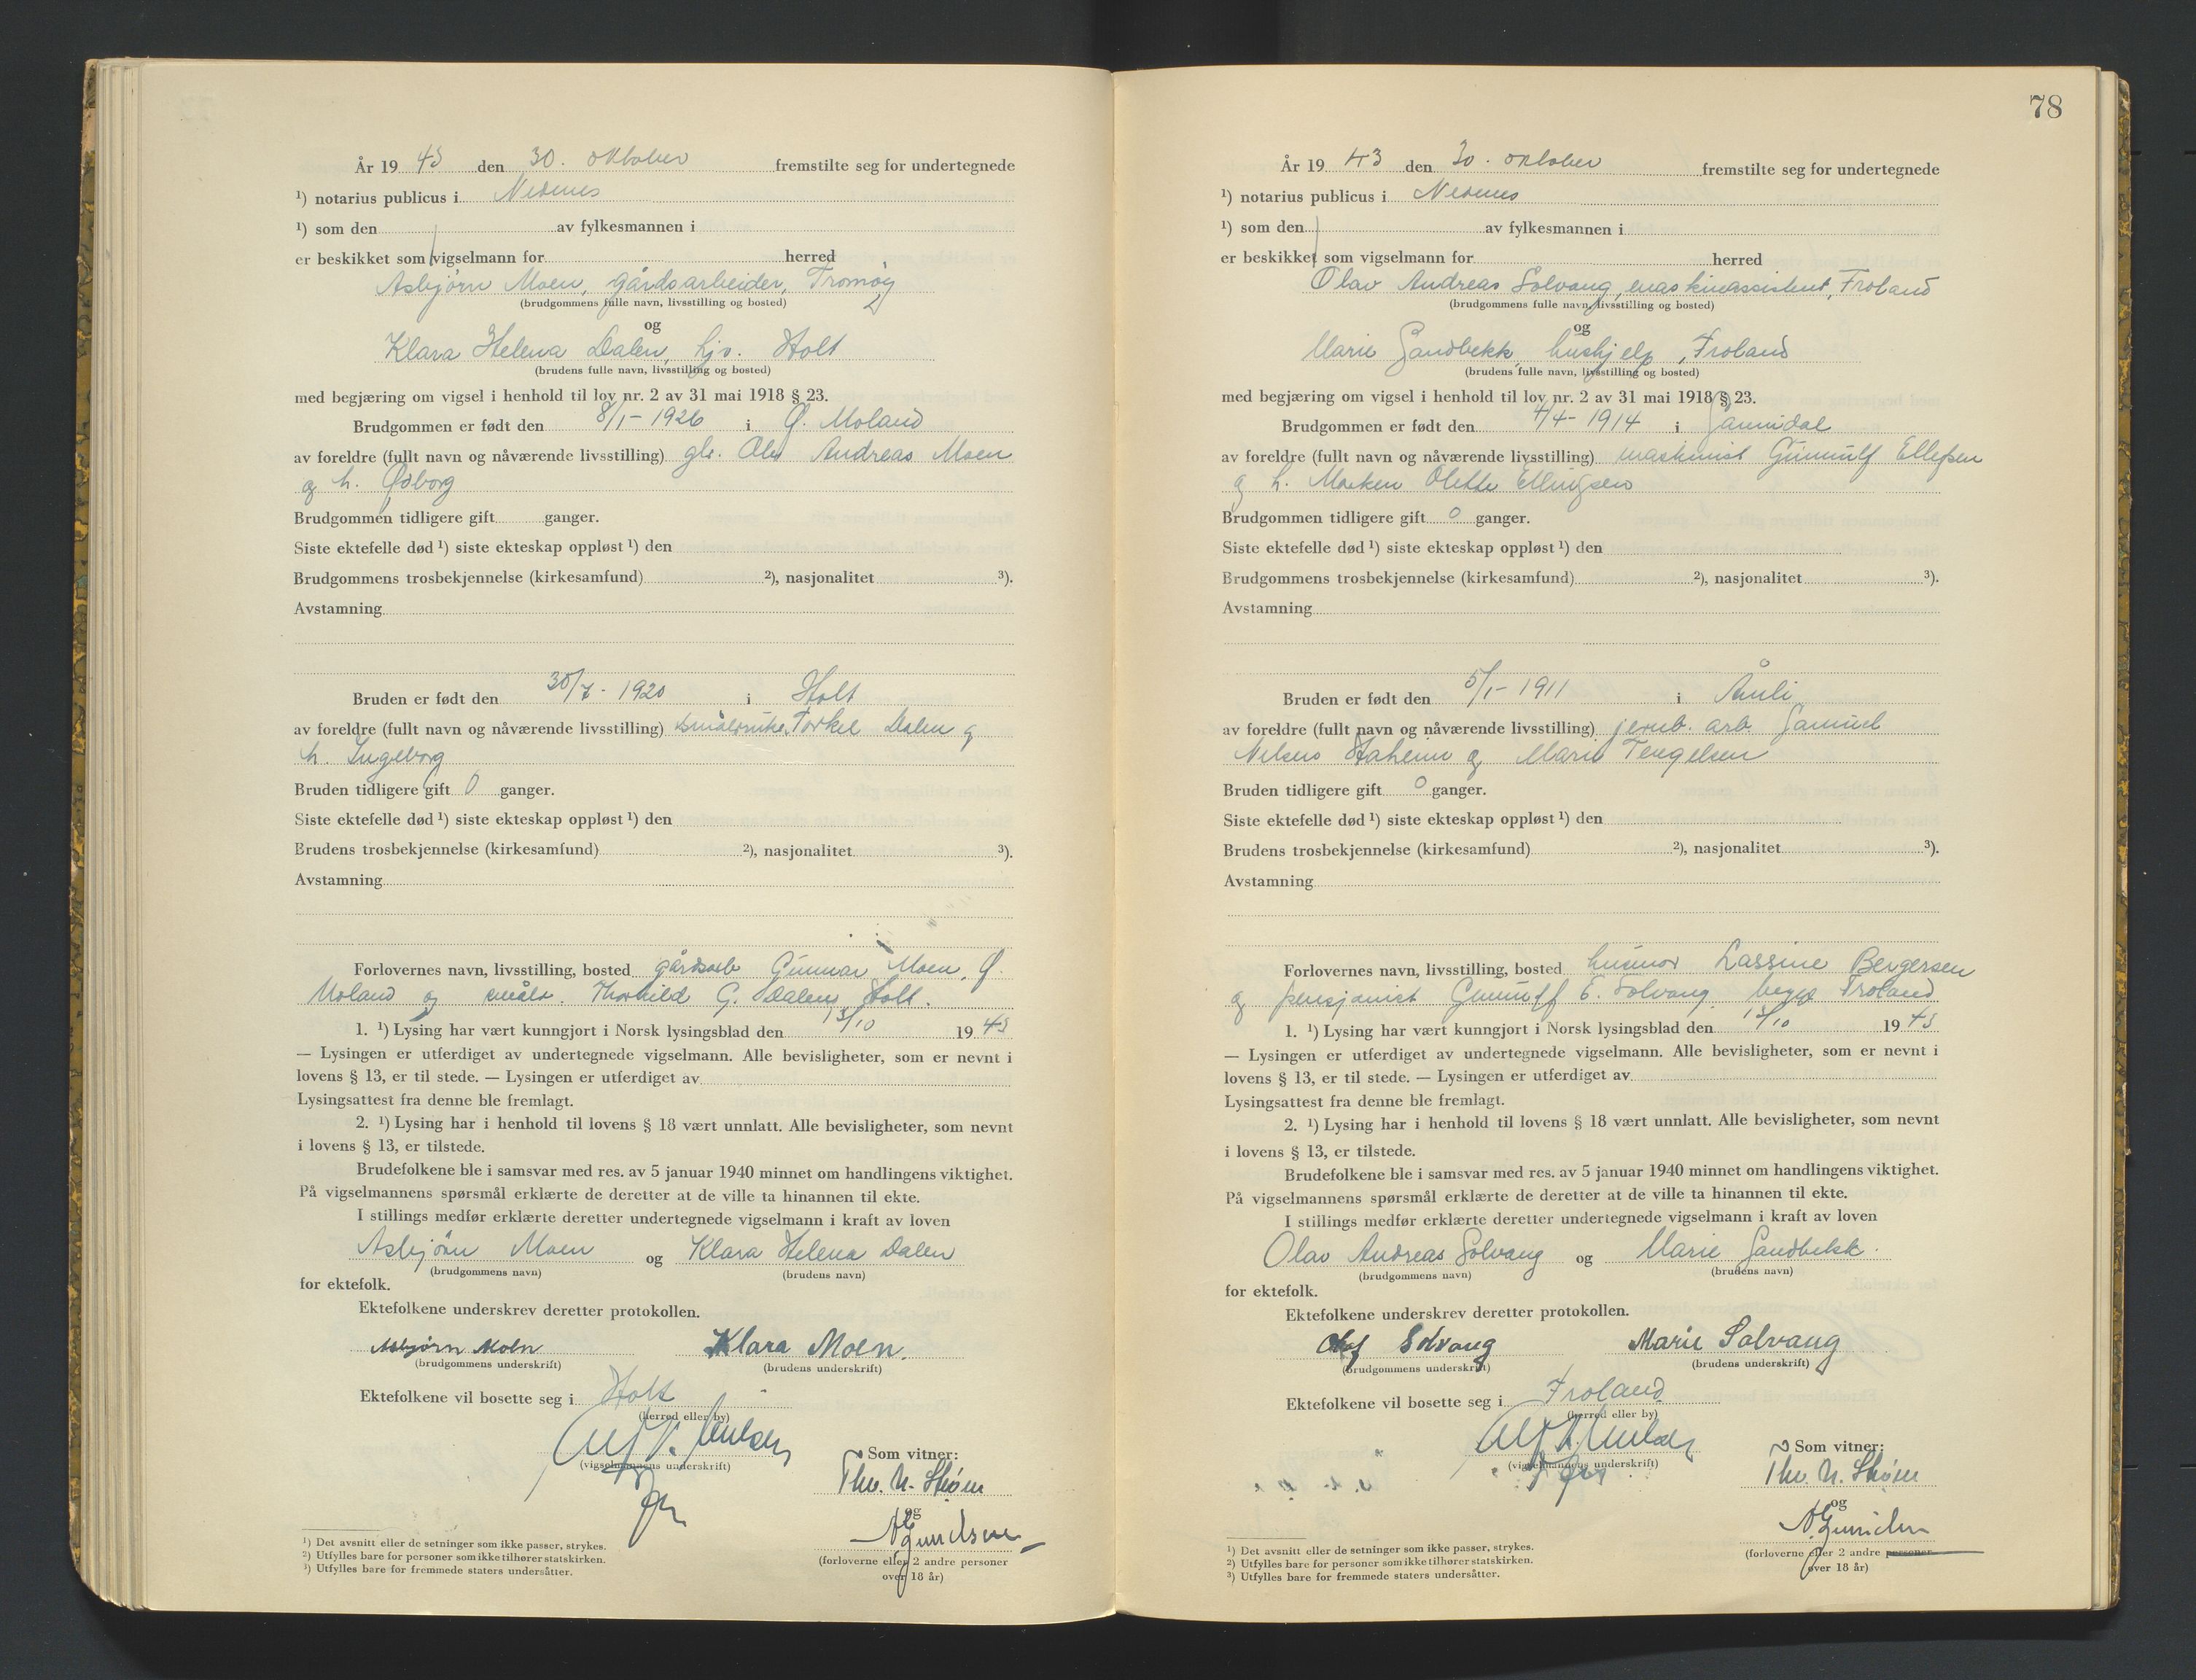 År 19 43 den 30. oktober fremstilte seg for undertegnede
¹) notarius publicus i Nedenes
¹) som den av fylkesmannen i
er beskikket som vigselmann for herred
Asbjørn Moen, gårdsarbeider, Tromøy
(brudgommens fulle navn, livsstilling og bosted)
og
Klara Helena Dalen, hjv. Holt
(brudens fulle navn, livsstilling og bosted)
med begjæring om vigsel i henhold til lov nr. 2 av 31 mai 1918 § 23.
Brudgommen er født den 8/1- 1926 i Ø. Moland
av foreldre (fullt navn og nåværende livsstilling) Andreas Moen
og h. Ødborg
Brudgommen tidligere gift ganger.
Siste ektefelle død ¹) siste ekteskap oppløst ¹) den
Brudgommens trosbekjennelse (kirkesamfund) ²), nasjonalitet ³).
Avstamning
Bruden er født den 30/7- 1920 i Holt
av foreldre (fullt navn og nåværende livsstilling) Torkel Dalen og
h. Ingeborg
Bruden tidligere gift 0 ganger.
Siste ektefelle død ¹) siste ekteskap oppløst ¹) den
Brudens trosbekjennelse (kirkesamfund) ²), nasjonalitet ³).
Avstamning
Forlovernes navn, livsstilling, bosted gårdsarb Gunnar Moen, Ø.
Moland og Thorhild G. Dalen, Holt.
1. ¹) Lysing har vært kunngjort i Norsk lysingsblad den 13/10 19 43
— Lysingen er utferdiget av undertegnede vigselmann. Alle bevisligheter, som er nevnt i
lovens § 13, er til stede. — Lysingen er utferdiget av
Lysingsattest fra denne ble fremlagt.
2. ¹) Lysing har i henhold til lovens § 18 vært unnlatt. Alle bevisligheter, som nevnt
i lovens § 13, er tilstede.
Brudefolkene ble i samsvar med res. av 5 januar 1940 minnet om handlingens viktighet.
På vigselmannens spørsmål erklærte de deretter at de ville ta hinannen til ekte.
I stillings medfør erklærte deretter undertegnede vigselmann i kraft av loven
Asbjørn Moen og Klara Helena Dalen
(brudgommens navn) (brudens navn)
for ektefolk.
Ektefolkene underskrev deretter protokollen.
Asbjørn Moen Klara Moen.
(brudgommens underskrift) (brudens underskrift)
Ektefolkene vil bosette seg i Holt
(herred eller by)
(vigselmannens underskrift)
Som vitner:
Thv. N. Strøm
og
(forloverne eller 2 andre personer
over 18 år)
¹) Det avsnitt eller de setninger som ikke passer, strykes.
²) Utfylles bare for personer som ikke tilhører statskirken.
³) Utfylles bare for fremmede staters undersåtter.
78
År 19 43 den 30. oktober fremstilte seg for undertegnede
¹) notarius publicus i Nedenes
¹) som den av fylkesmannen i
er beskikket som vigselmann for herred
Olav Andreas Solvang, maskinassistent, Froland
(brudgommens fulle navn, livsstilling og bosted)
og
Marie Sandbekk, hushjelp, Froland
(brudens fulle navn, livsstilling og bosted)
med begjæring om vigsel i henhold til lov nr. 2 av 31 mai 1918 § 23.
Brudgommen er født den 4/4- 1914 i Sannidal
av foreldre (fullt navn og nåværende livsstilling) maskinist Gunnulf Ellefsen
og h. Marken Olette Ellingsen
Brudgommen tidligere gift 0 ganger.
Siste ektefelle død ¹) siste ekteskap oppløst ¹) den
Brudgommens trosbekjennelse (kirkesamfund) ²), nasjonalitet ³).
Avstamning
Bruden er født den 5/1- 1911 i Åmli
av foreldre (fullt navn og nåværende livsstilling) jernb. arb. Samuel
Nilsen og Marie Tengelsen
Bruden tidligere gift 0 ganger.
Siste ektefelle død ¹) siste ekteskap oppløst ¹) den
Brudens trosbekjennelse (kirkesamfund) ²), nasjonalitet ³).
Avstamning
Forlovernes navn, livsstilling, bosted husmor Lassine Bergersen
og pensjonist Gunnulf E. Solvang, begge Froland
1. ¹) Lysing har vært kunngjort i Norsk lysingsblad den 13/10 19 43
— Lysingen er utferdiget av undertegnede vigselmann. Alle bevisligheter, som er nevnt i
lovens § 13, er til stede. — Lysingen er utferdiget av
Lysingsattest fra denne ble fremlagt.
2. ¹) Lysing har i henhold til lovens § 18 vært unnlatt. Alle bevisligheter, som nevnt
i lovens § 13, er tilstede.
Brudefolkene ble i samsvar med res. av 5 januar 1940 minnet om handlingens viktighet.
På vigselmannens spørsmål erklærte de deretter at de ville ta hinannen til ekte.
I stillings medfør erklærte deretter undertegnede vigselmann i kraft av loven
Olav Andreas Solvang og Marie Sandbekk.
(brudgommens navn) (brudens navn)
for ektefolk.
Ektefolkene underskrev deretter protokollen.
Olaf Solvang Marie Solvang
(brudgommens underskrift) (brudens underskrift)
Ektefolkene vil bosette seg i Froland
(herred eller by)
(vigselmannens underskrift)
Som vitner:
Thv. N. Strøm
og
(forloverne eller 2 andre personer
over 18 år)
¹) Det avsnitt eller de setninger som ikke passer, strykes.
²) Utfylles bare for personer som ikke tilhører statskirken.
³) Utfylles bare for fremmede staters undersåtter.